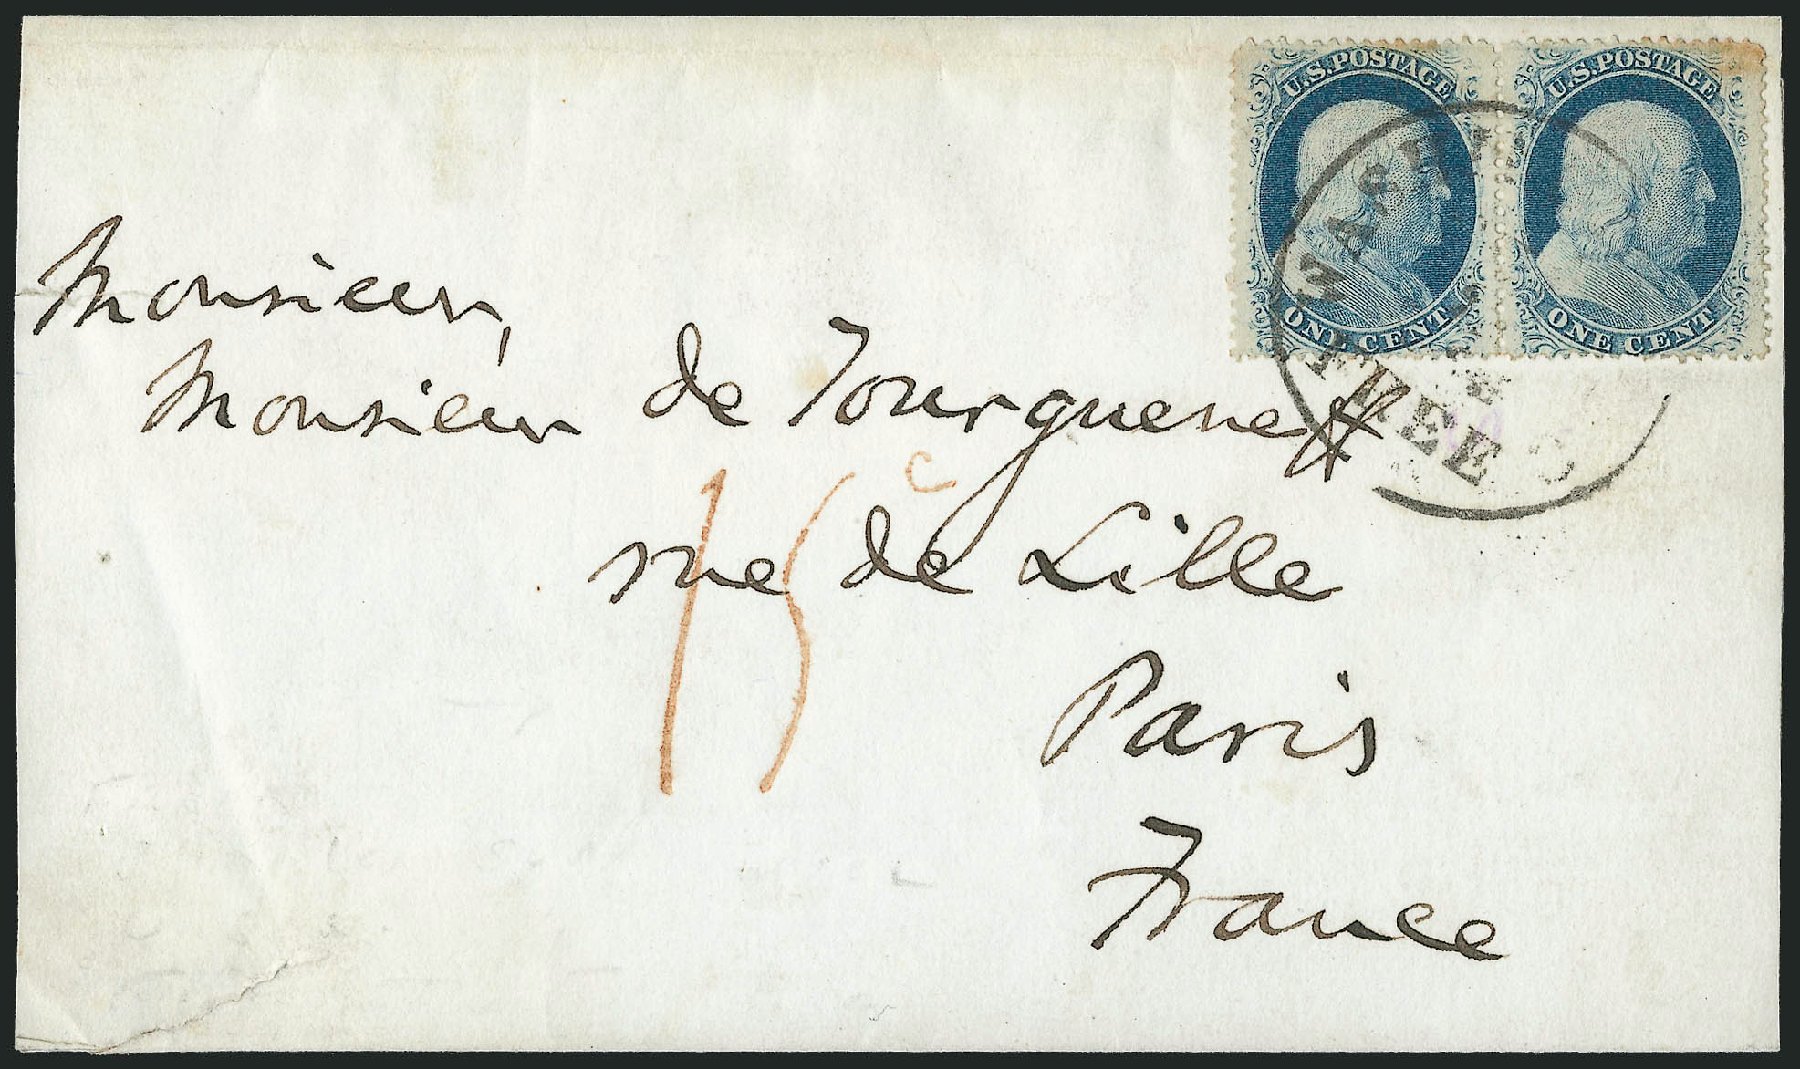 U.S. POSTAGE U.S. POSTAGE
ONE CENT ONE CENT
WASH
FREE
Monsieur,
Monsieur de Tourgueneff
15 c
rue de Lille
Paris
France